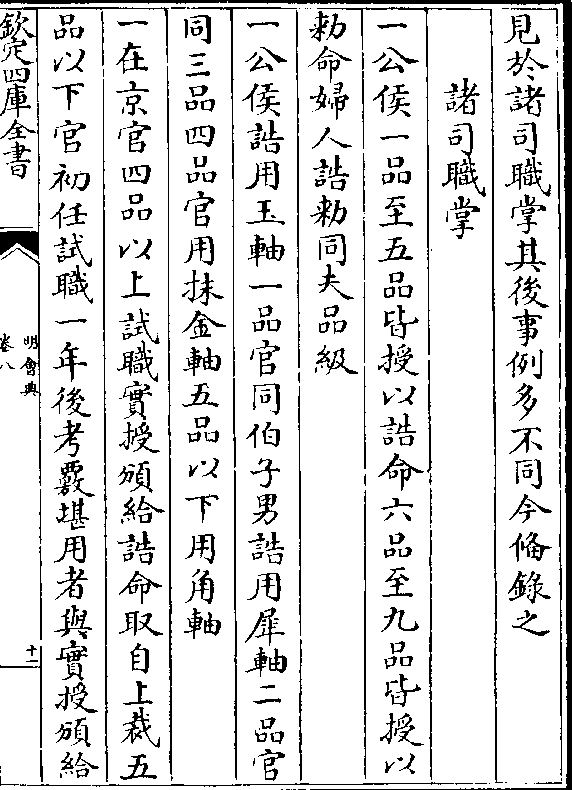 見於諸司職掌其後事例多不同今偹錄之
諸司職掌
一公侯一品至五品皆授以誥命六品至九品皆授以
勑命婦人誥勑同夫品級
一公侯誥用玉軸一品官同伯子男誥用犀軸二品官
同三品四品官用抹金軸五品以下用角軸
一在京官四品以上試職實授頒給誥命取自上裁五
品以下官初任試職一年後考覈堪用者與實授頒給
欽定四庫全書
明會典
卷八
十二